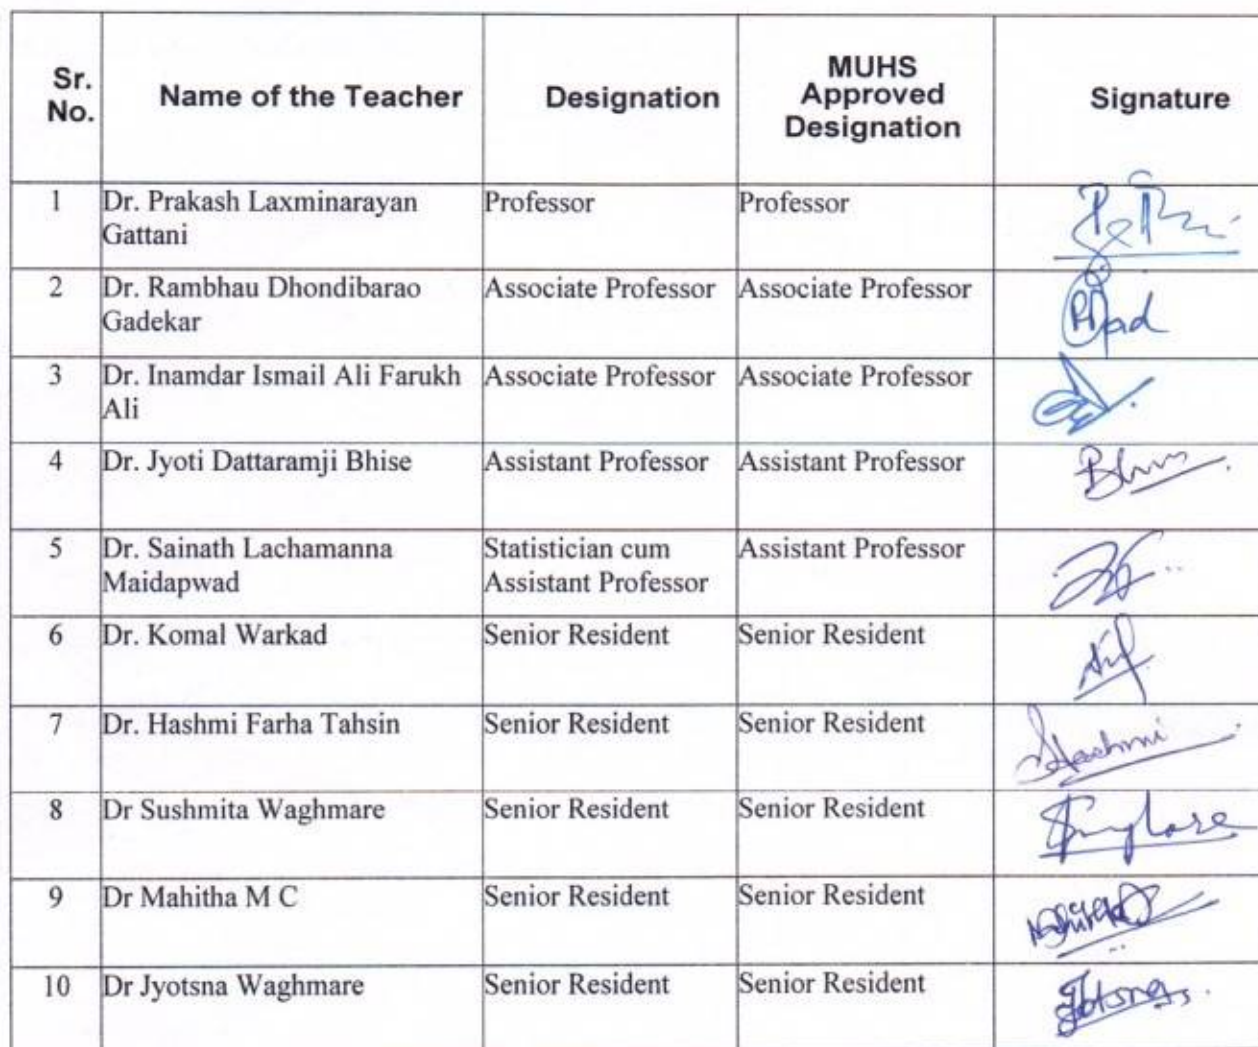 Sr. No.
Name of the Teacher
Designation
MUHS Approved Designation
Signature
1 Dr. Prakash Laxminarayan Professor Professor
Gattani
2 Dr. Rambhau Dhondibarao Associate Professor Associate Professor
Gadekar
3 Dr. Inamdar Ismail Ali Farukh Associate Professor Associate Professor
Ali
4 Dr. Jyoti Dattaramji Bhise Assistant Professor Assistant Professor
5 Dr. Sainath Lachamanna Statistician cum Assistant Professor
Maidapwad Assistant Professor
6 Dr. Komal Warkad Senior Resident Senior Resident
7 Dr. Hashmi Farha Tahsin Senior Resident Senior Resident
Hashmi
8 Dr Sushmita Waghmare Senior Resident Senior Resident
9 Dr Mahitha M C Senior Resident Senior Resident
10 Dr Jyotsna Waghmare Senior Resident Senior Resident